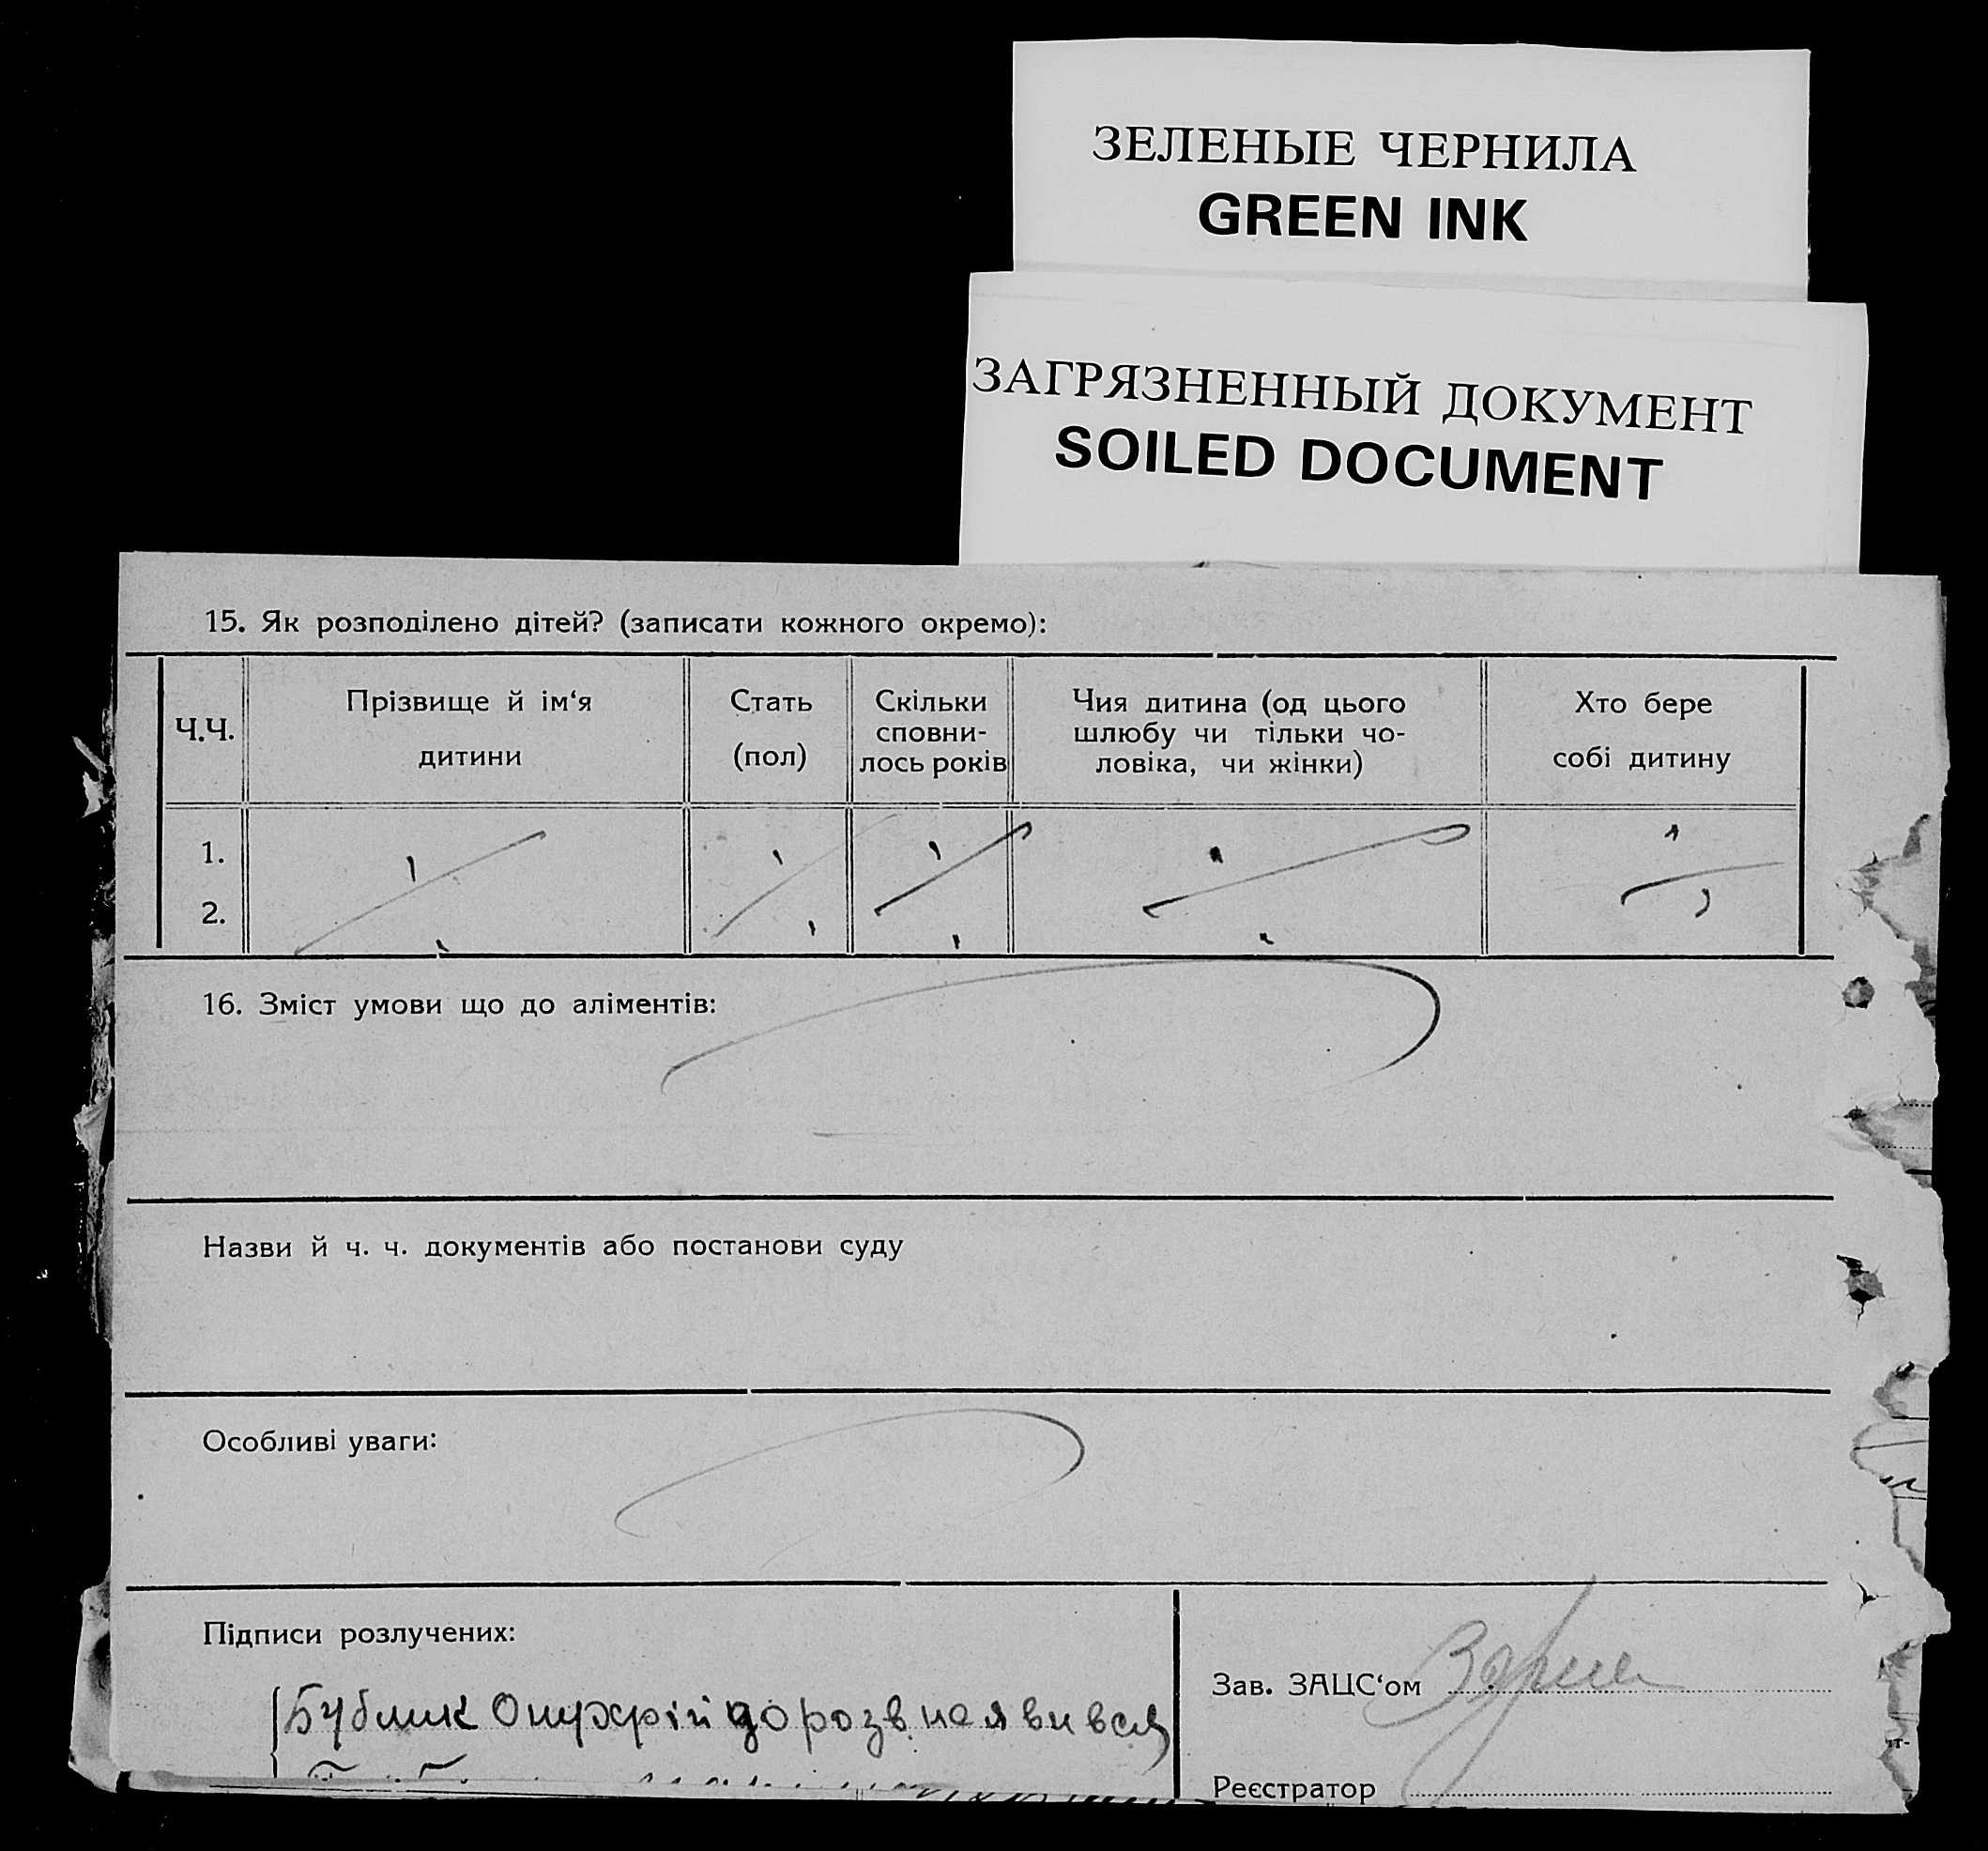 ЗЕЛЕНЫЕ ЧЕРНИЛА
GREEN INK
ЗАГРЯЗНЕННЫЙ ДОКУМЕНТ
SOILED DOCUMENT
15. Як розподілено дітей? (записати кожного окремо):
Ч.Ч.
Прізвище й ім‘я
дитини
Стать
(пол)
Скільки
сповни-
лось років
Чия дитина (од цього
шлюбу чи тільки чо-
ловіка, чи жінки)
Хто бере
собі дитину
1.
2.
16. Зміст умови що до аліментів:
Назви й ч. ч. документів або постанови суду
Особливі уваги:
Підписи розлучених:
Бублик Онухрій до розв. не явився
Зав. ЗАЦС‘ом
Реєстратор